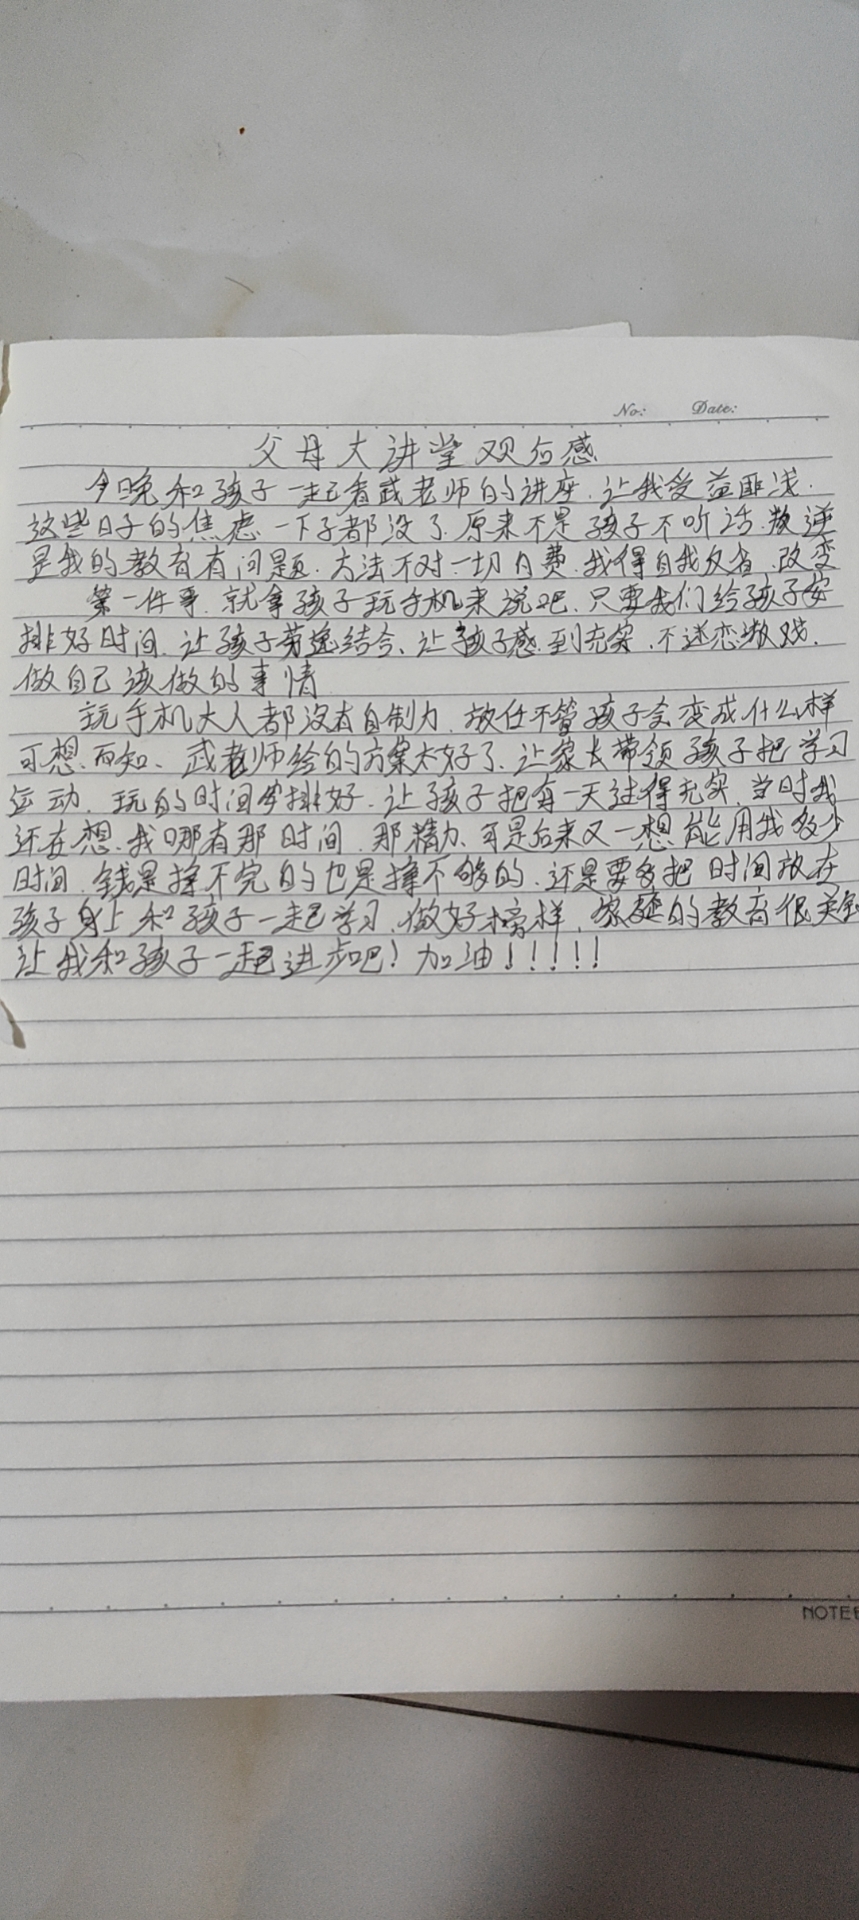 No: Date:
父母大讲堂观后感
今晚和孩子一起看武老师的讲座.让我受益匪浅.
这些日子的焦虑一下子都没了.原来不是孩子不听话.叛逆
是我的教育有问题.方法不对一切白费.我得自我反省.改变
第一件事.就拿孩子玩手机来说吧.只要我们给孩子安
排好时间.让孩子劳逸结合.让孩子感到充实.不迷恋游戏.
做自己该做的事情
玩手机大人都没有自制力.放任不管孩子会变成什么样
可想而知、武老师给的方案太好了.让家长带领孩子把学习
运动.玩的时间安排好.让孩子把每一天过得充实.当时我
还在想.我哪有那时间.那精力.可是后来又一想能用我多少
时间.钱是挣不完的也是挣不够的.还是要多把时间放在
孩子身上和孩子一起学习.做好榜样.家庭的教育很关键
让我和孩子一起进步吧!加油!!!!!
NOTEB